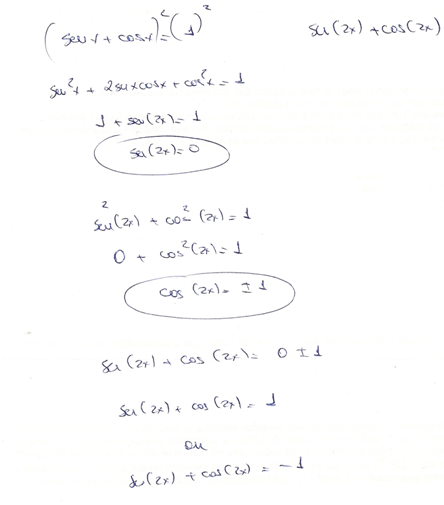 (sen x + cos x)² = (1)²
sen(2x) + cos(2x)
sen²x + 2senxcosx + cos²x = 1
1 + sen(2x) = 1
sen(2x) = 0
sen²(2x) + cos²(2x) = 1
0 + cos²(2x) = 1
cos(2x) = ± 1
sen(2x) + cos(2x) = 0 ± 1
sen(2x) + cos(2x) = 1
ou
sen(2x) + cos(2x) = -1